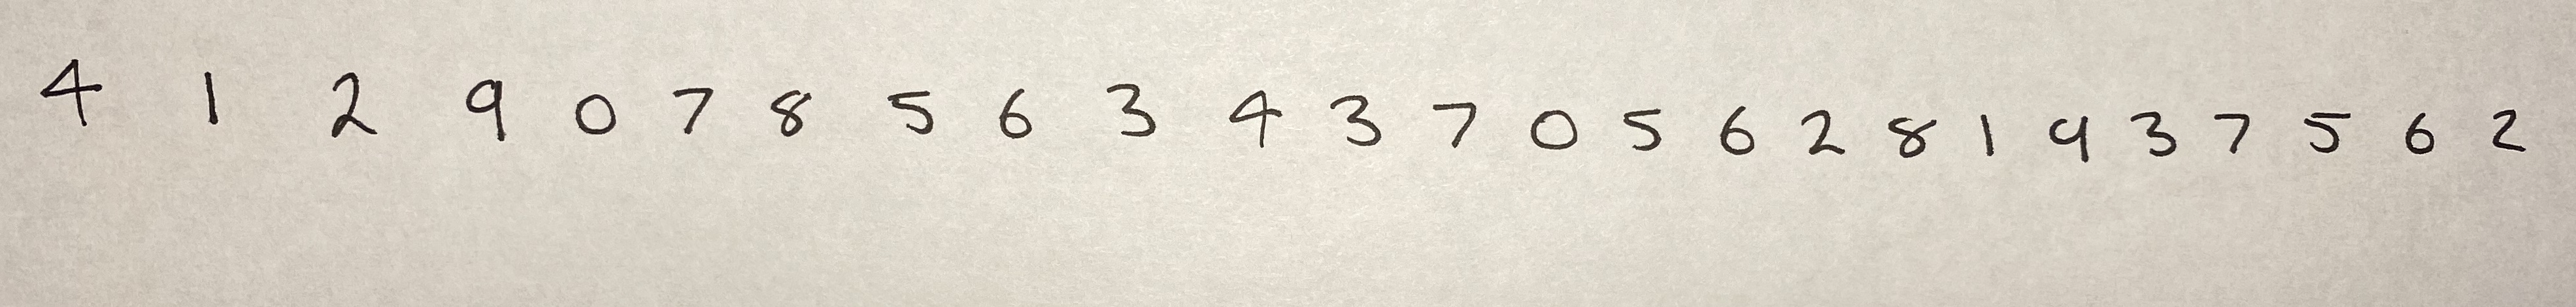 4 1 2 9 0 7 8 5 6 3 4 3 7 0 5 6 2 8 1 9 3 7 5 6 2